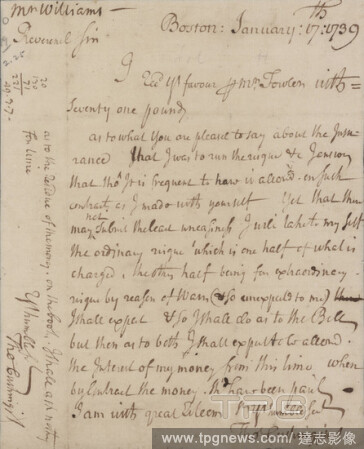 Mr Williams
Boston: January: 17th: 1739
Reverend Sir
I Recd yr favour pr Mr Fowler with
Seventy one pounds
as to what You are pleased to say about the Insu
rance that I was to run the risque & &
that tho' It is frequent to have it allowed on such
contracts as I made with yourself Yet that there
may not the least uneasiness I will take to my self
the ordinary risque which is one half of what is
charged. the other half being for extraordinary
risque by reason of Warr (& so unexpected to me)
I shall expect & so I shall do as to the Bell
but then as to both I shall expect to be allowed
the Interest of my money from this time. when
by Contract the money shd have been paid
I am with great Esteem Yr humble Servt
as to the Residue of the money on the book I shall ask nothing
for time
Yr humble St
TPG
www.tpgnews.com/達志影像